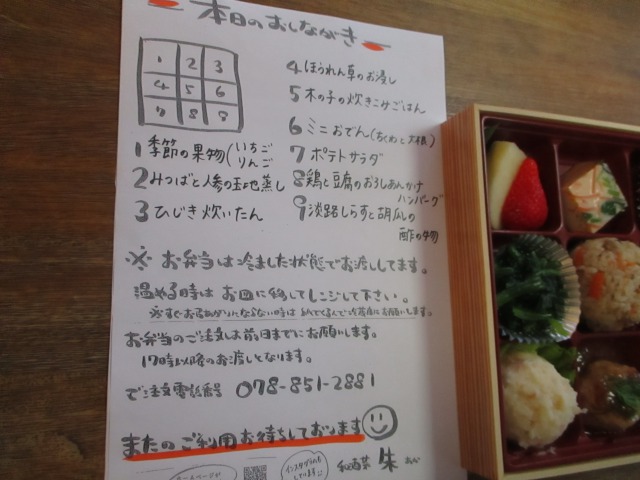 本日のおしながき
1 2 3
4 5 6
7 8 9
1 季節の果物(いちご
りんご
2 みつばと人参の玉地蒸し
3 ひじき炊いたん
4 ほうれん草のお浸し
5 木の子の炊きこみごはん
6 ミニおでん(ちくわと大根)
7 ポテトサラダ
8 鶏と豆腐のおろしあんかけ
ハンバーグ
9 淡路しらすと胡瓜の
酢の物
※ お弁当は冷ました状態でお渡ししてます。
温める時はお皿に移してレンジして下さい。
お弁当のご注文は前日までにお願いします。
17時以降のお渡しとなります。
ご注文電話番号 078-851-2881
またのご利用お待ちしております
ホームページが
インスタグラムも
しています
朱